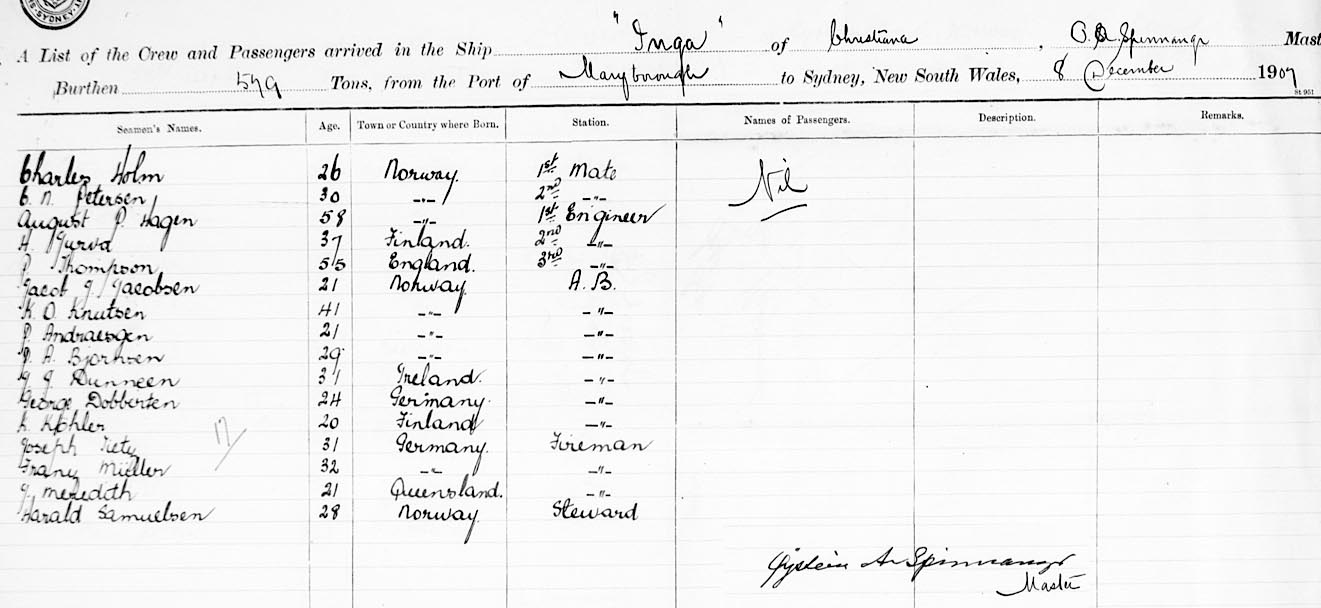 SYDNEY
A List of the Crew and Passengers arrived in the Ship "Inga" of Christiana, O. A. Spinnangr Mast
Burthen 579 Tons, from the Port of Maryborough to Sydney, New South Wales, 8 December 1907
St 951
Seamen's Names. Age. Town or Country where Born. Station. Names of Passengers. Description. Remarks.
Charles Holm 26 Norway. 1st Mate Nil
C. N. Petersen 30 -"- 2nd -"-
August P. Hagen 58 -"- 1st Engineer
H. 37 Finland. 2nd -"-
P. Thompson 55 England. 3rd -"-
Jacob J. Jacobsen 21 Norway A.B.
K. O Knutsen 41 -"- -"-
P. Andraesen 21 -"- -"-
P. A. Bjornsen 29 -"- -"-
J J Dunneen 31 Ireland. -"-
George Dobberten 24 Germany. -"-
K. Köhler 20 Finland -"-
17/
Joseph Tietz 31 Germany. Fireman
Franz Müller 32 -"- -"-
J. Meredith 21 Queensland. -"-
Harald Samuelsen 28 Norway. Steward
Öystein A. Spinnangr
Master